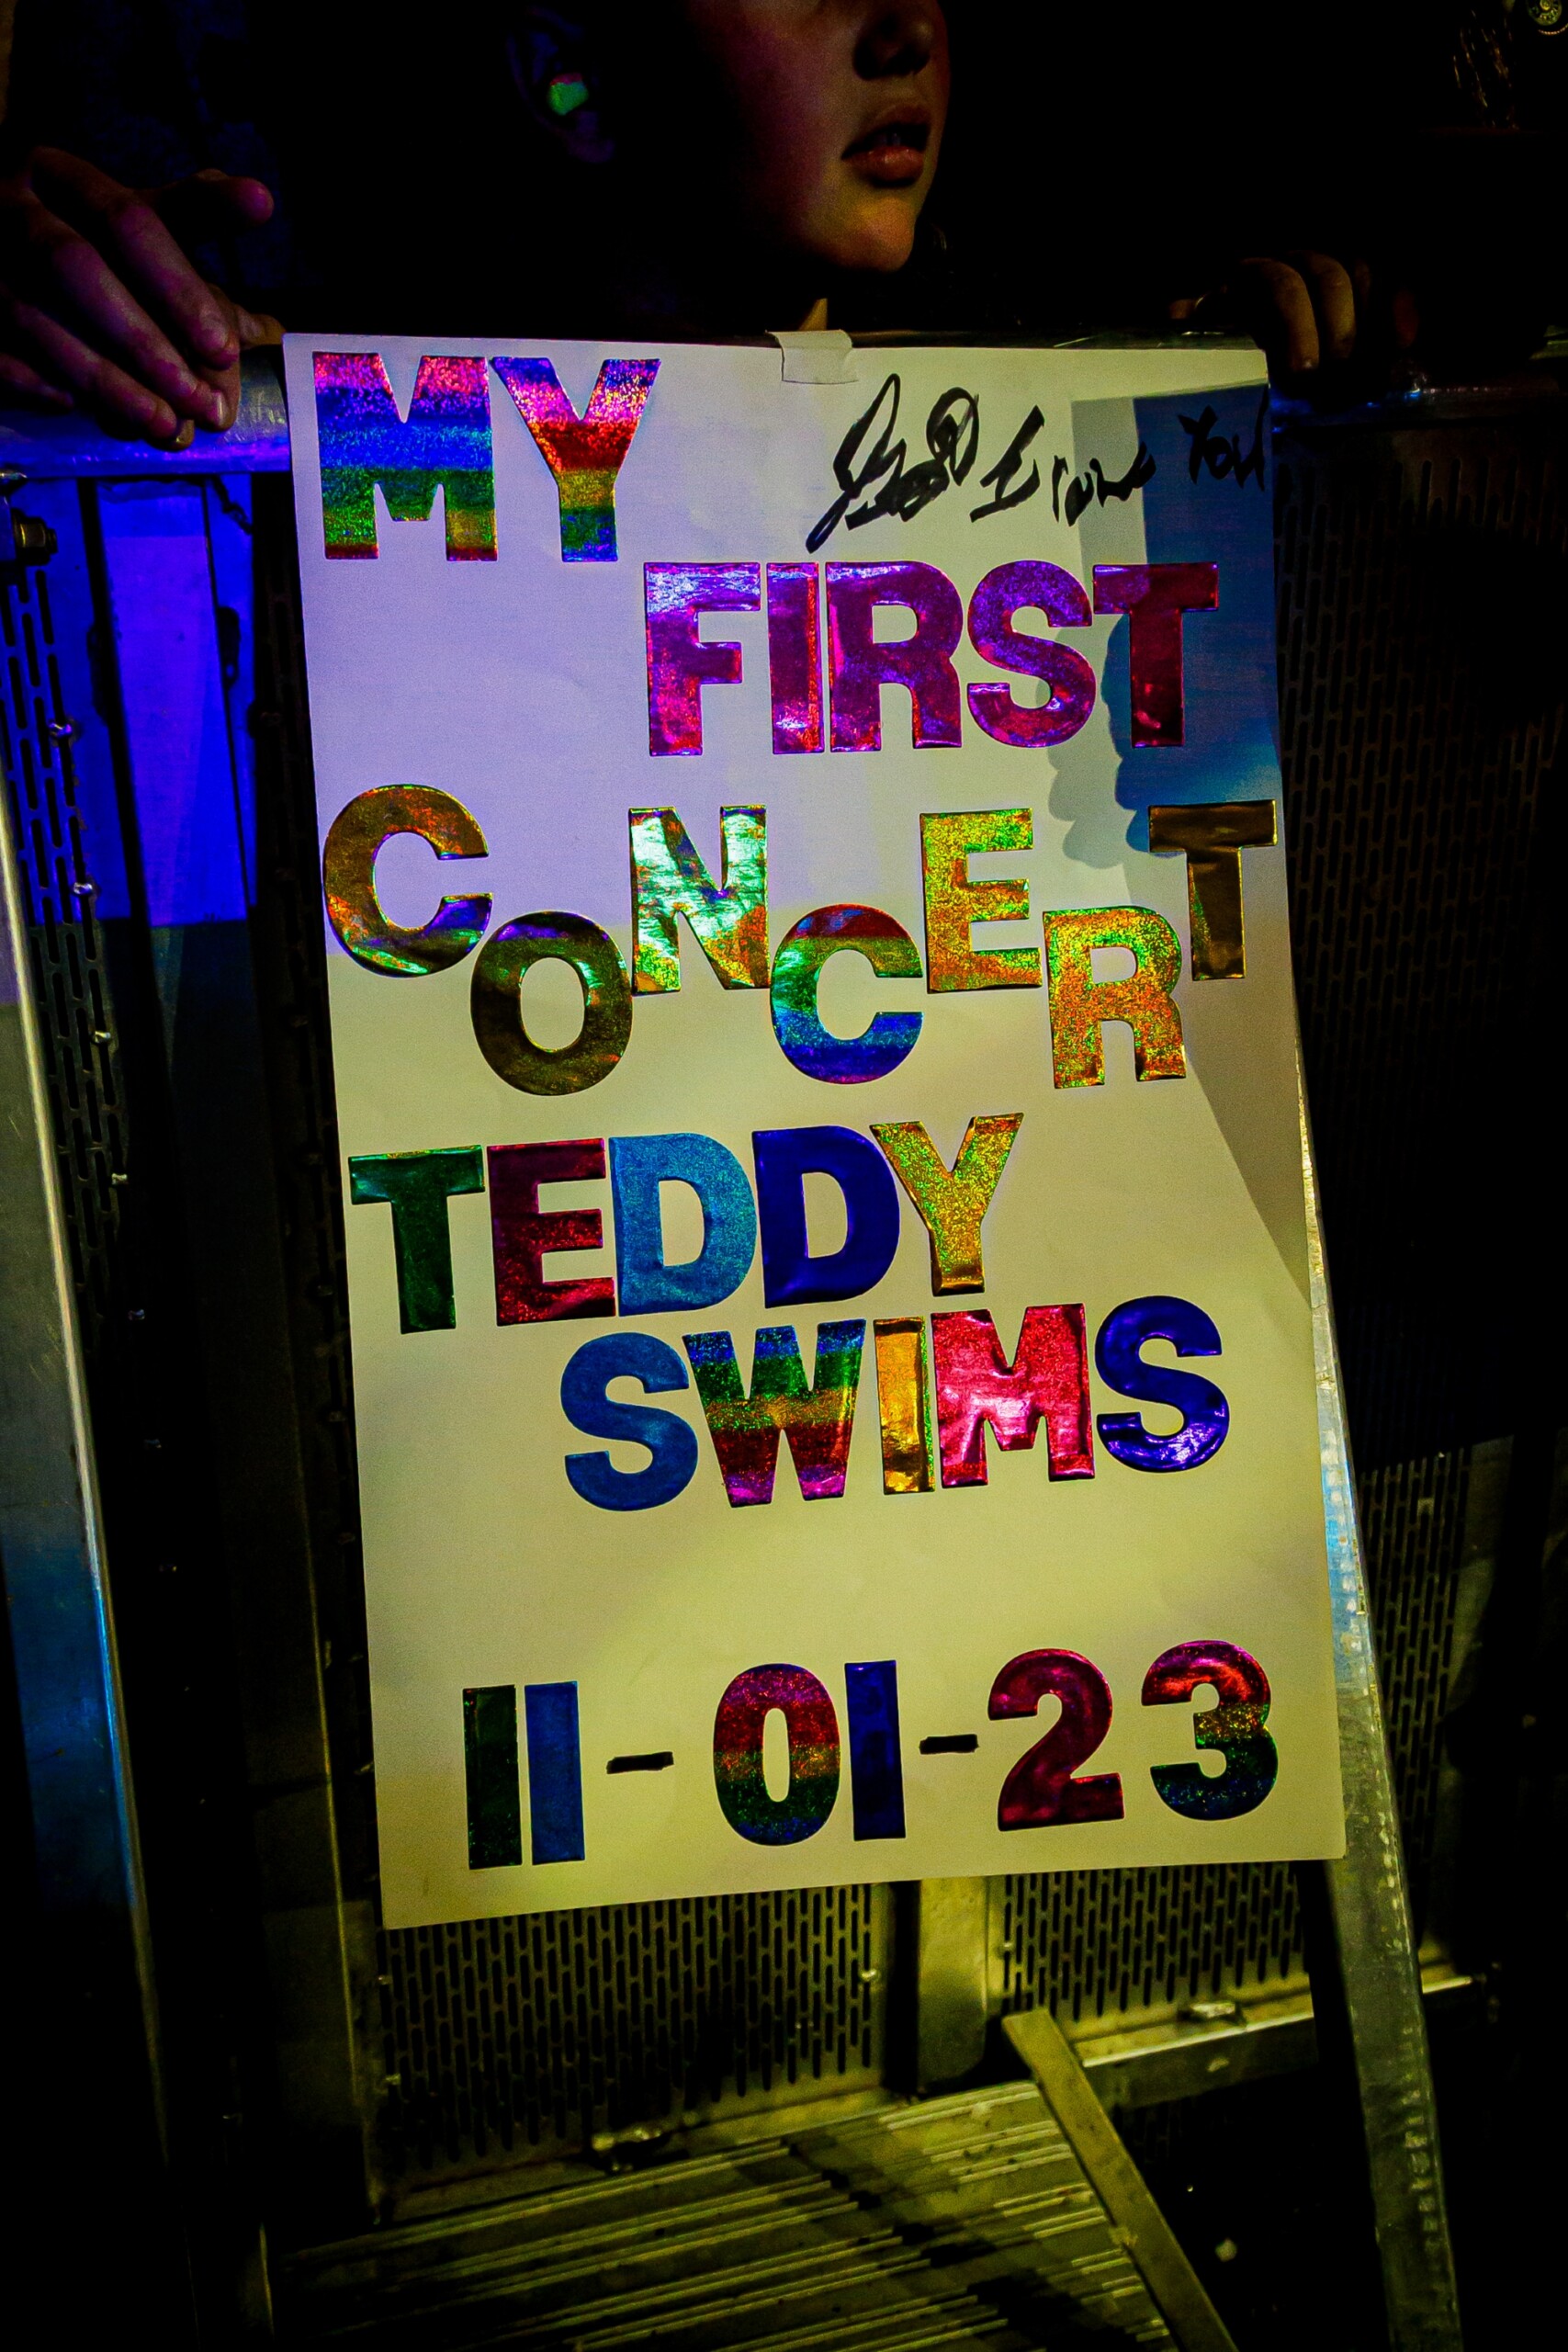 MY
I love you
FIRST
CONCERT
TEDDY
SWIMS
11-01-23